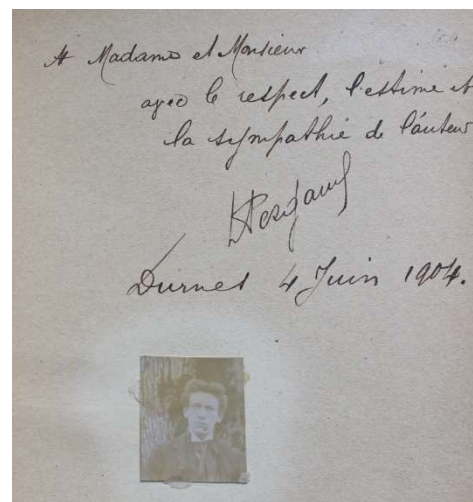 A Madame et Monsieur
avec le respect, l'estime et
la sympathie de l'auteur
LPergaud
Durnes 4 Juin 1904.